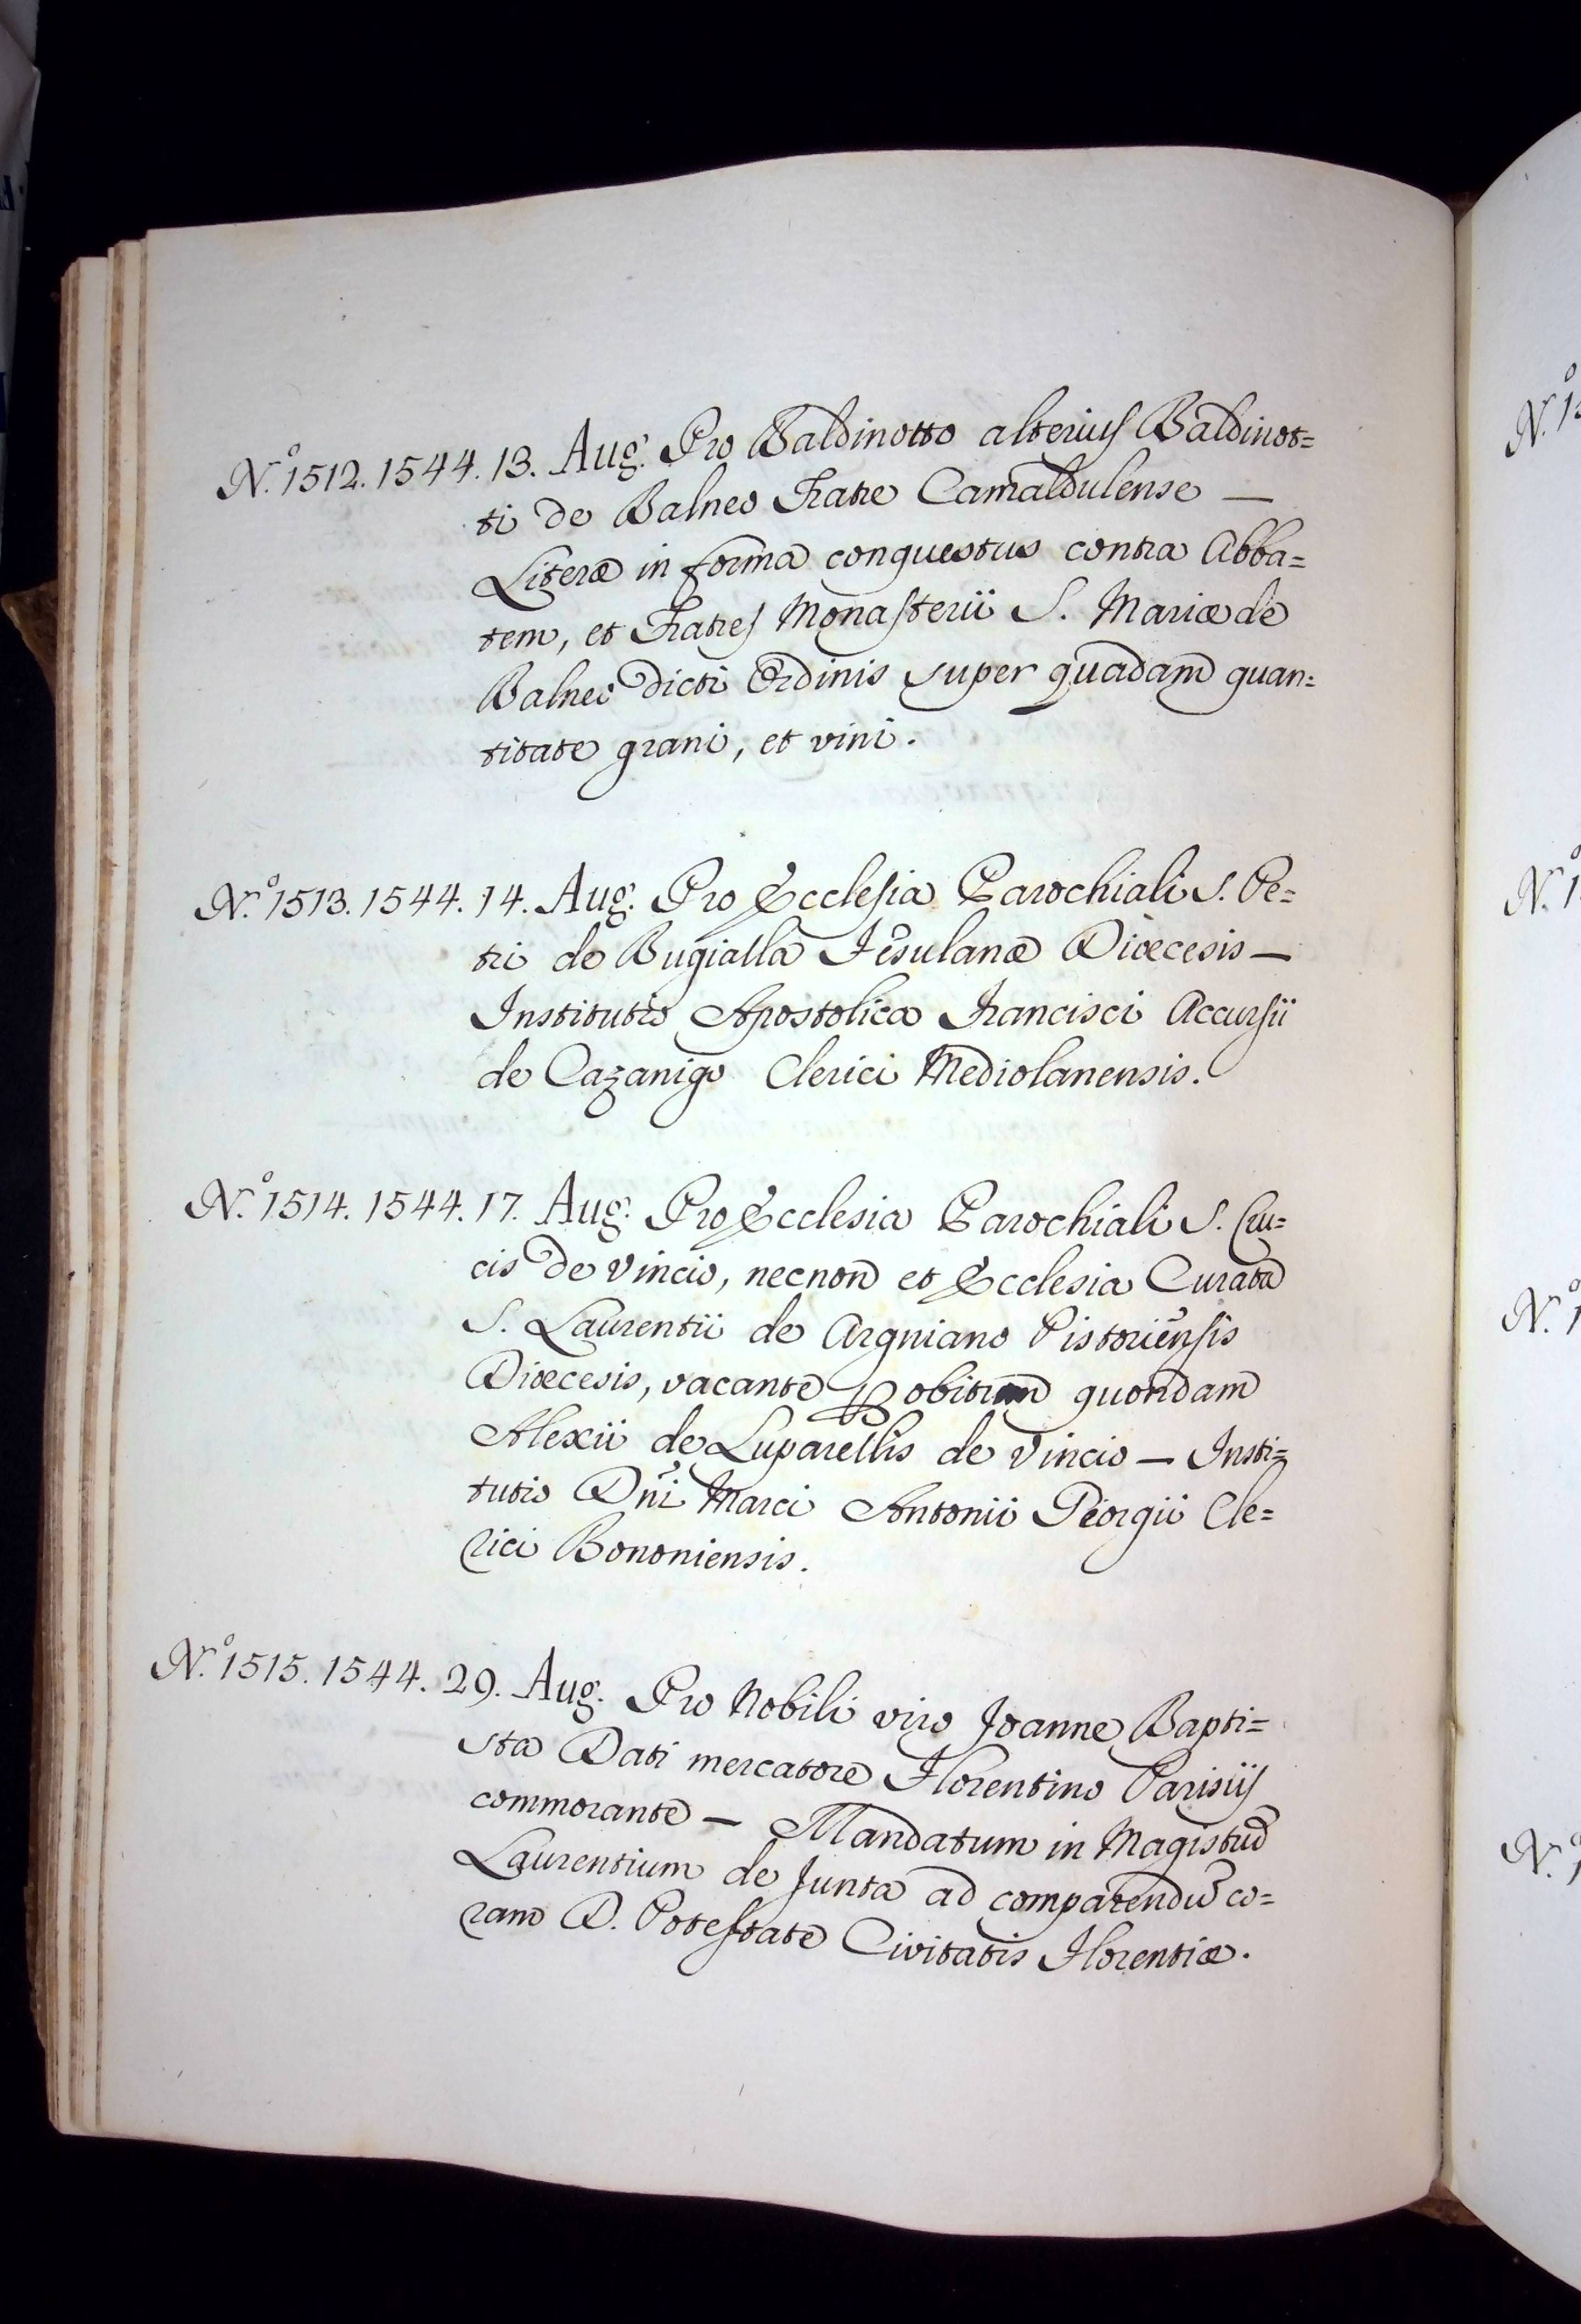 N.º 1512. 1544. 13. Aug. Pro Baldinotto alterius Baldinot=
ti de Balneo Fratre Camaldulense —
Literæ in forma conquestus contra Abba=
tem, et Fratres Monasterii S. Mariæ de
Balneo dicti Ordinis super quadam quan=
titate grani, et vini.
N.º 1513. 1544. 14. Aug. Pro Ecclesia Parochiali S. Pe=
tri de Bugialla Fesulanæ Diœcesis —
Institutio Apostolica Francisci Accursii
de Cazanigo Clerici Mediolanensis.
N.º 1514. 1544. 17. Aug. Pro Ecclesia Parochiali S. Cru=
cis de Vincio, necnon et Ecclesia Curata
S. Laurentii de Argniano Pistoriensis
Diœcesis, vacante obitum quondam
Alexii de Luparellis de Vincio — Insti=
tutio Dñi Marci Antonii Georgii Cle=
rici Bononiensis.
N.º 1515. 1544. 29. Aug. Pro Nobili viro Joanne Bapti=
sta Dati mercatore Florentino Parisiis
commorante — Mandatum in Magistrū
Laurentium de Junta ad comparendū co=
ram D. Potestate Civitatis Florentiæ.
N.º 1
N.º 1
N.º 1
N.º 1